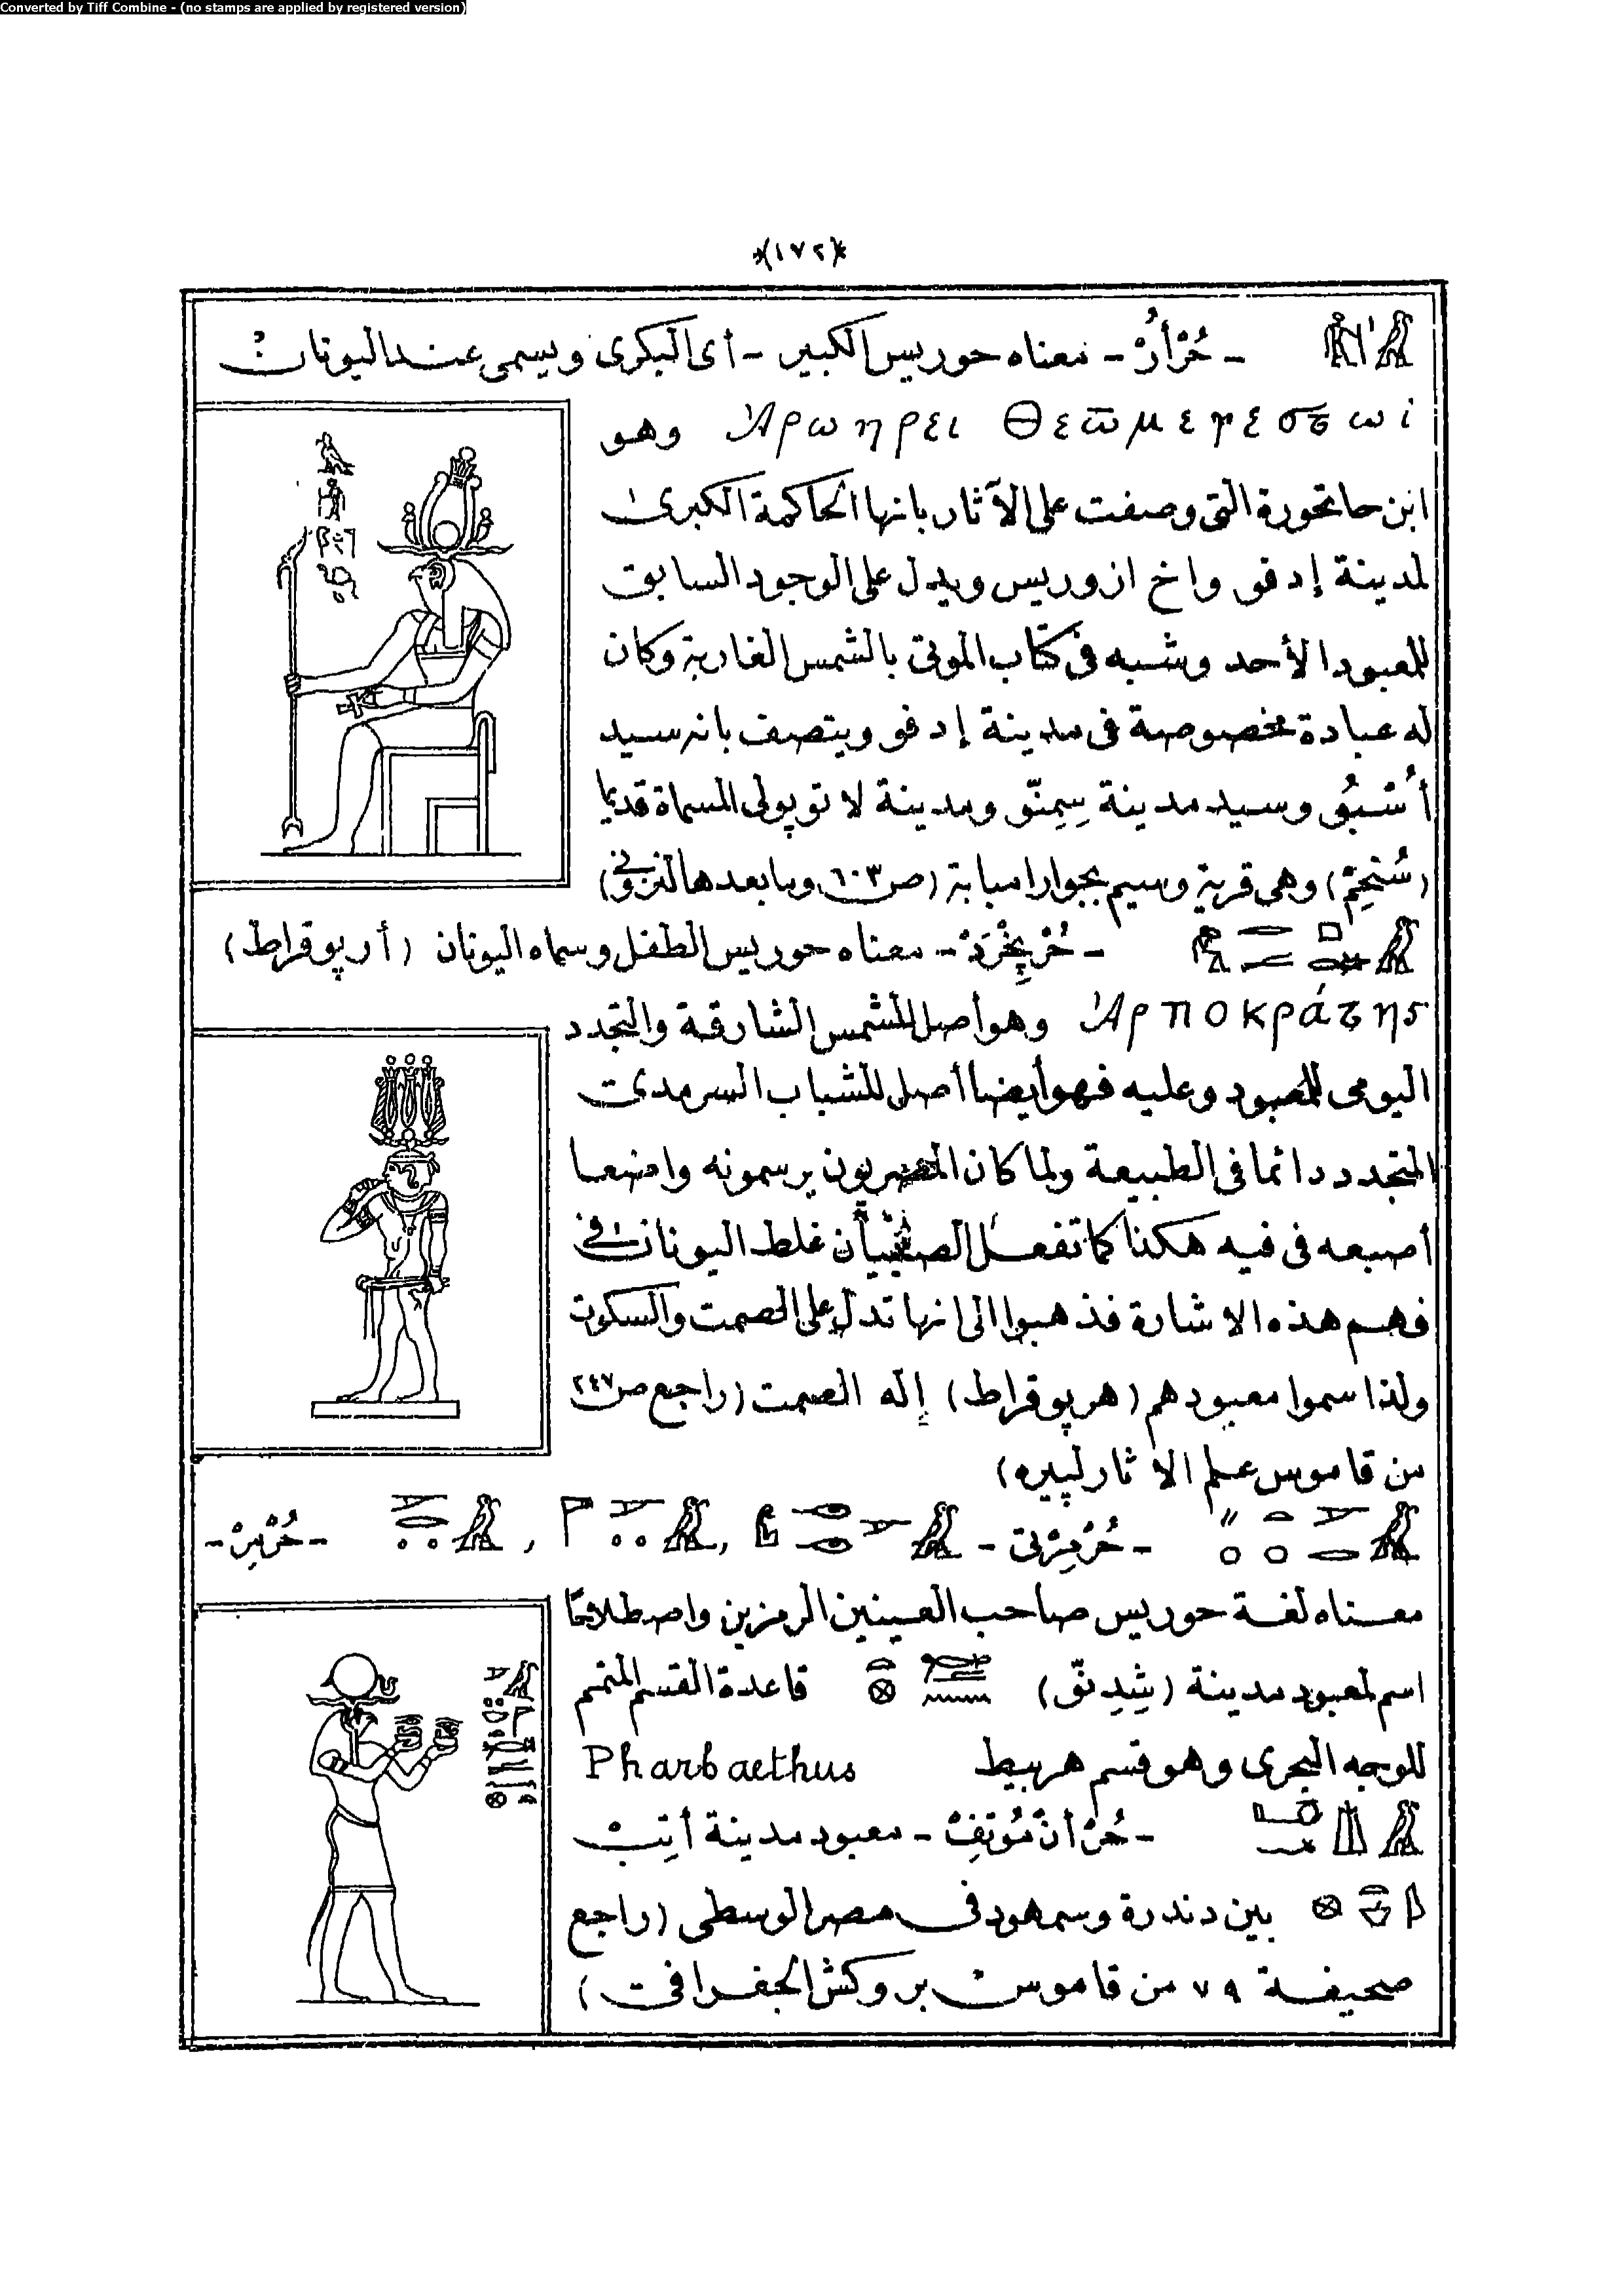 Converted by Tiff Combine - (no stamps are applied by registered version)
*(١٧٢)*
- حُرْأُرْ - معناه حوريس الكبير - أى البكرى ويسمى عند اليونان
Ἀρωηρει Θεῶ μεγεσῳ وهو
ابن حاتحورة التى وصفت على الآثار بانها الحاكمة الكبرى
لمدينة إدفو واخ ازوريس ويدل على الوجود السابق
للمعبود الأحد وشبه فى كتاب الموتى بالشمس الغاربة وكان
له عبادة مخصوصة فى مدينة إدفو ويتصف بانه سيد
أُشْبُو وسيد مدينة سِمِنّو ومدينة لاتوپولى المسماة قديما
(سُنْخِمْ) وهى قرية وسيم بجوار امبابة (ص ٦٠٣ وما بعدها لنزونى)
- حُرْپِخْرَدْ - معناه حوريس الطفل وسماه اليونان (أرپوقراط)
Ἀρποκράτης وهو أصل للشمس الشارقة والتجدد
اليومى للمعبود وعليه فهو أيضا أصل للشباب السرمدى
المتجدد دائما فى الطبيعة ولما كان المصريون يرسمونه واضعا
أصبعه فى فيه هكذا كما تفعل الصبيان غلط اليونان فى
فهم هذه الاشارة فذهبوا الى انها تدل على الصمت والسكوت
ولذا سموا معبودهم (هرپوقراط) إله الصمت (راجع ص ٢٤٧
من قاموس علم الآثار لپيره)
- حُرْمِرْتى - , , - حُرْمِرْ -
معناه لغة حوريس صاحب العينين الرمزين واصطلاحا
اسم لمعبود مدينة (شِدِنّو) قاعدة القسم المتمم
للوجه البحرى وهو قسم هربيط Pharbaethus
- حُرْأنْ مُوتِفْ - معبود مدينة أتِبْ
بين دندرة وسمهود فى مصر الوسطى (راجع
صحيفة ٧٩ من قاموس بروكش الجغرافى)